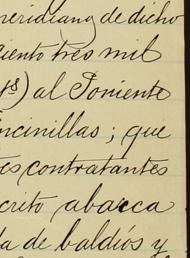 meridiano de dicho
ciento tres mil
4s) al Poniente
Encinillas; que
es contratantes
crito abarca
a de baldíos y